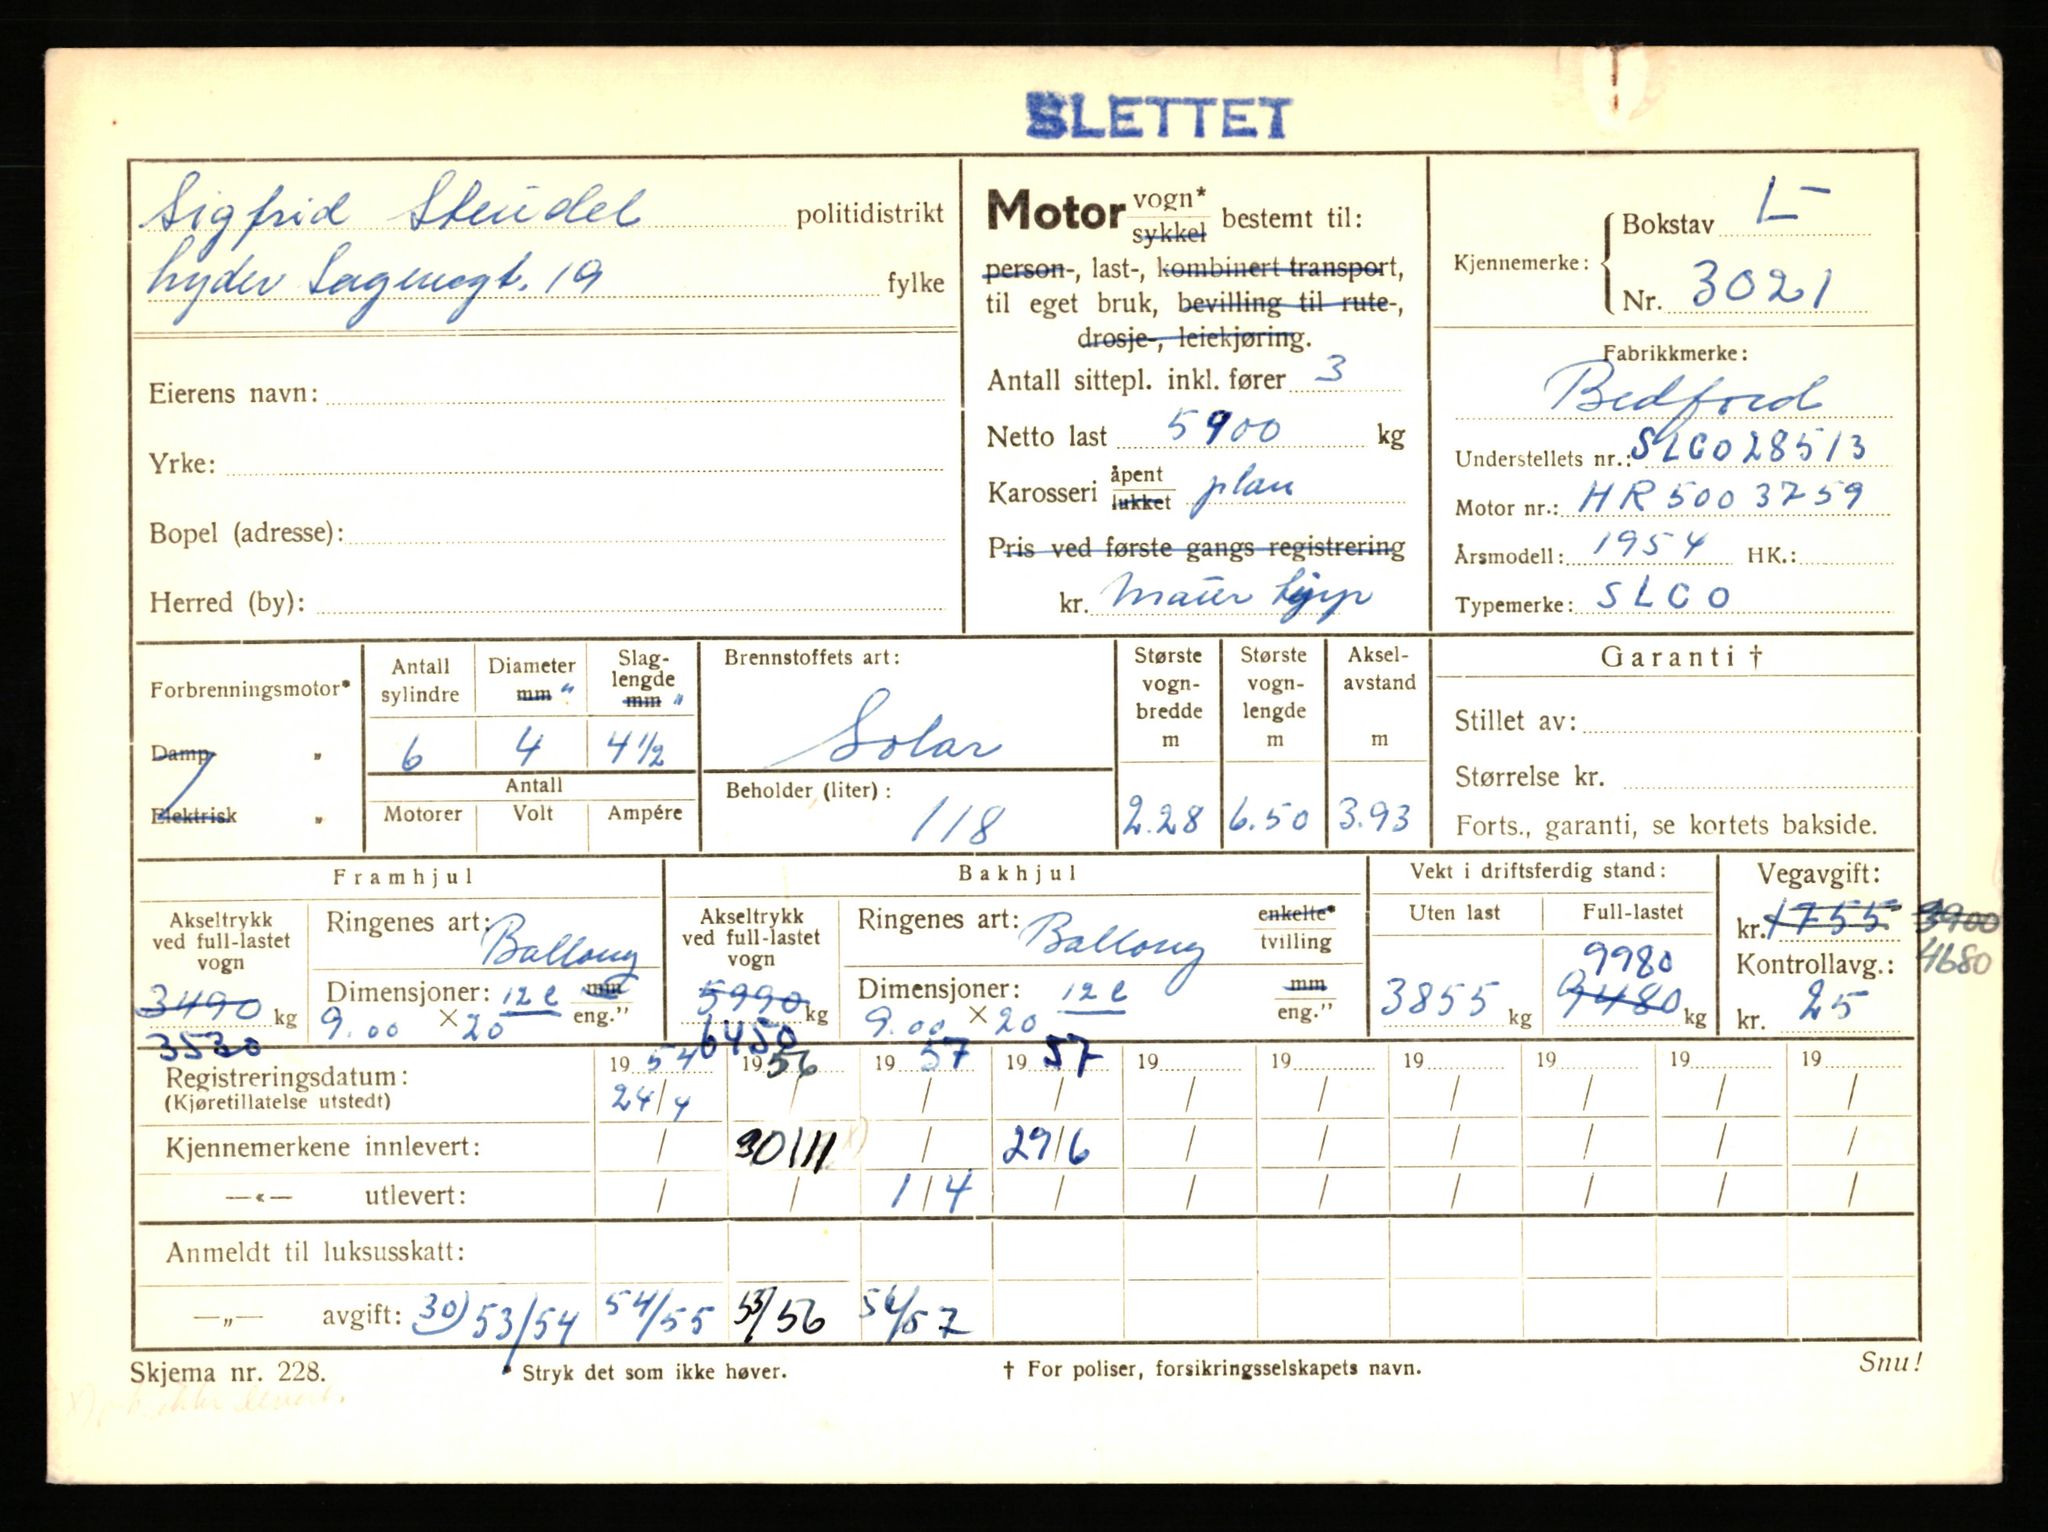 SLETTET
Sigfrid Steudel politidistrikt
Lyder Sagensgt. 19 fylke
Eierens navn:
Yrke:
Bopel (adresse):
Herred (by):
Motor vogn* sykkel bestemt til:
person-, last-, kombinert transport,
til eget bruk, bevilling til rute-,
drosje-, leiekjøring.
Antall sittepl. inkl. fører 3
Netto last 5900 kg
Karosseri åpent lukket plan
Pris ved første gangs registrering
kr.
Kjennemerke: Bokstav L-
Nr. 3021
Fabrikkmerke:
Bedford
Understellets nr.: SLCO28513
Motor nr.: HR5003759
Årsmodell: 1954 HK.:
Typemerke: SLCO
Forbrenningsmotor*
Damp "
Elektrisk "
Antall sylindre Diameter mm " Slaglengde mm "
6 4 4 1/2
Antall
Motorer Volt Ampére
Brennstoffets art:
Solar
Beholder (liter):
118
Største vogn-bredde m 2.28
Største vogn-lengde m 6.50
Aksel-avstand m 3.93
Garanti †
Stillet av:
Størrelse kr.
Forts., garanti, se kortets bakside.
Framhjul
Akseltrykk ved full-lastet vogn
3490 kg
3530
Ringenes art: Ballong
Dimensjoner: 12 l mm eng."
9.00 × 20
Bakhjul
Akseltrykk ved full-lastet vogn
5990 kg
6450
Ringenes art: Ballong enkelte* tvilling
Dimensjoner: 12 l mm eng."
9.00 × 20
Vekt i driftsferdig stand:
Uten last Full-lastet
9980
3855 kg 9480 kg
Vegavgift:
kr. 1755 3900
Kontrollavg.: 4680
kr. 25
Registreringsdatum: 19 54 19 56 19 57 19 57 19 19 19 19 19 19
(Kjøretillatelse utstedt) 24/4 / / / / / / / / /
Kjennemerkene innlevert: / 30/11 x) / 29/6 / / / / / /
—«— utlevert: / / 1/4 / / / / / / /
Anmeldt til luksusskatt:
—„— avgift: 30) 53/54 54/55 55/56 56/57
Skjema nr. 228. * Stryk det som ikke høver. † For poliser, forsikringsselskapets navn. Snu!